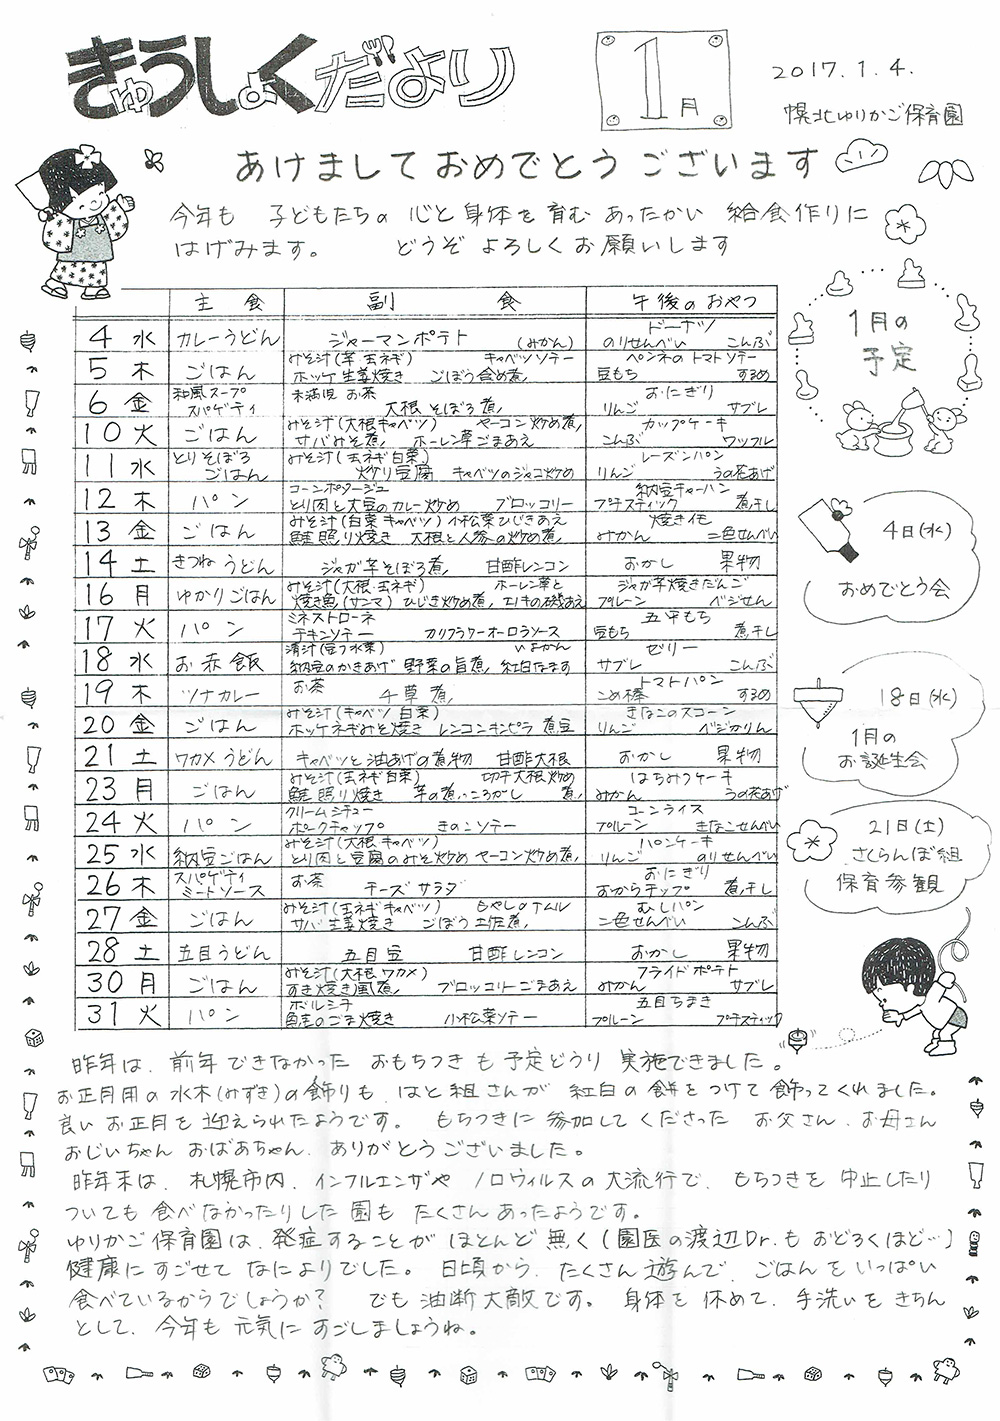 きゅうしょくだより
1月
2017.1.4.
幌北ゆりかご保育園
あけまして おめでとう ございます
今年も 子どもたちの 心と身体を育む あったかい 給食作りに
はげみます。 どうぞ よろしくお願いします
主食 副食 午後のおやつ
4 水 カレーうどん ジャーマンポテト (みかん) ドーナツ のりせんべい こんぶ
5 木 ごはん みそ汁(芋 玉ネギ) キャベツソテー ホッケ生姜焼き ごぼう含め煮 ペンネのトマトソテー 豆もち するめ
6 金 和風スープスパゲティ 未満児 お茶 大根そぼろ煮 おにぎり りんご サブレ
10 火 ごはん みそ汁(大根キャベツ) ヤーコン炒め煮 サバみそ煮 ホーレン草ごまあえ カップケーキ こんぶ ワッフル
11 水 とりそぼろごはん みそ汁(玉ネギ白菜) 炒り豆腐 キャベツのジャコ炒め レーズンパン りんご うの花あげ
12 木 パン コーンポタージュ とり肉と大豆のカレー炒め ブロッコリー 納豆チャーハン プチスティック 煮干し
13 金 ごはん みそ汁(白菜キャベツ) 小松菜ひじきあえ 鮭照り焼き 大根と人参の炒め煮 焼きイモ みかん 二色せんべい
14 土 きつねうどん ジャガ芋そぼろ煮 甘酢レンコン おかし 果物
16 月 ゆかりごはん みそ汁(大根 玉ネギ) ホーレン草と 焼き魚(サンマ) ひじき炒め煮 エノキの磯あえ ジャガ芋焼きだんご プルーン ベジせん
17 火 パン ミネストローネ チキンソテー カリフラワーオーロラソース 五平もち 豆もち 煮干し
18 水 お赤飯 清汁(豆フ水菜) いよかん 納豆のかきあげ 野菜の旨煮 紅白なます ゼリー サブレ こんぶ
19 木 ツナカレー お茶 千草煮 トマトパン こめ棒 するめ
20 金 ごはん みそ汁(キャベツ 白菜) ホッケネギみそ焼き レンコンキンピラ 煮豆 きなこのスコーン りんご ベジかりん
21 土 ワカメうどん キャベツと油あげの煮物 甘酢大根 おかし 果物
23 月 ごはん みそ汁(玉ネギ白菜) 切干大根炒め煮 鮭照り焼き 芋の煮っころがし はちみつケーキ みかん うの花あげ
24 火 パン クリームシチュー ポークチャップ きのこソテー コーンライス プルーン きなこせんべい
25 水 納豆ごはん みそ汁(大根キャベツ) とり肉と豆腐のみそ炒め ヤーコン炒め煮 パンケーキ りんご のりせんべい
26 木 スパゲティミートソース お茶 チーズサラダ おにぎり おからチップ 煮干し
27 金 ごはん みそ汁(玉ネギキャベツ) もやしのナムル サバ生姜焼き ごぼう土佐煮 むしパン 二色せんべい こんぶ
28 土 五目うどん 五目豆 甘酢レンコン おかし 果物
30 月 ごはん みそ汁(大根 ワカメ) すき焼き風煮 ブロッコリーごまあえ フライドポテト みかん サブレ
31 火 パン ボルシチ 鮭のごま焼き 小松菜ソテー 五目ちまき プルーン プチスティック
1月の
予定
4日(水)
おめでとう会
18日(水)
1月の
お誕生会
21日(土)
さくらんぼ組
保育参観
昨年は、前年できなかった おもちつきも予定どうり 実施できました。
お正月用の水木(みずき)の飾りも、はと組さんが 紅白の餅をつけて飾ってくれました。
良いお正月を迎えられたようです。 もちつきに参加してくださった お父さん、お母さん
おじいちゃん おばあちゃん、ありがとうございました。
昨年末は、札幌市内、インフルエンザや ノロウィルスの大流行で、もちつきを中止したり
ついても食べなかったりした園も たくさんあったようです。
ゆりかご保育園は、発症することが ほとんど無く(園医の渡辺Dr.も おどろくほど…)
健康にすごせて なによりでした。 日頃から、たくさん遊んで、ごはんをいっぱい
食べているからでしょうか? でも油断大敵です。 身体を休めて、手洗いをきちん
として、今年も元気にすごしましょうね。